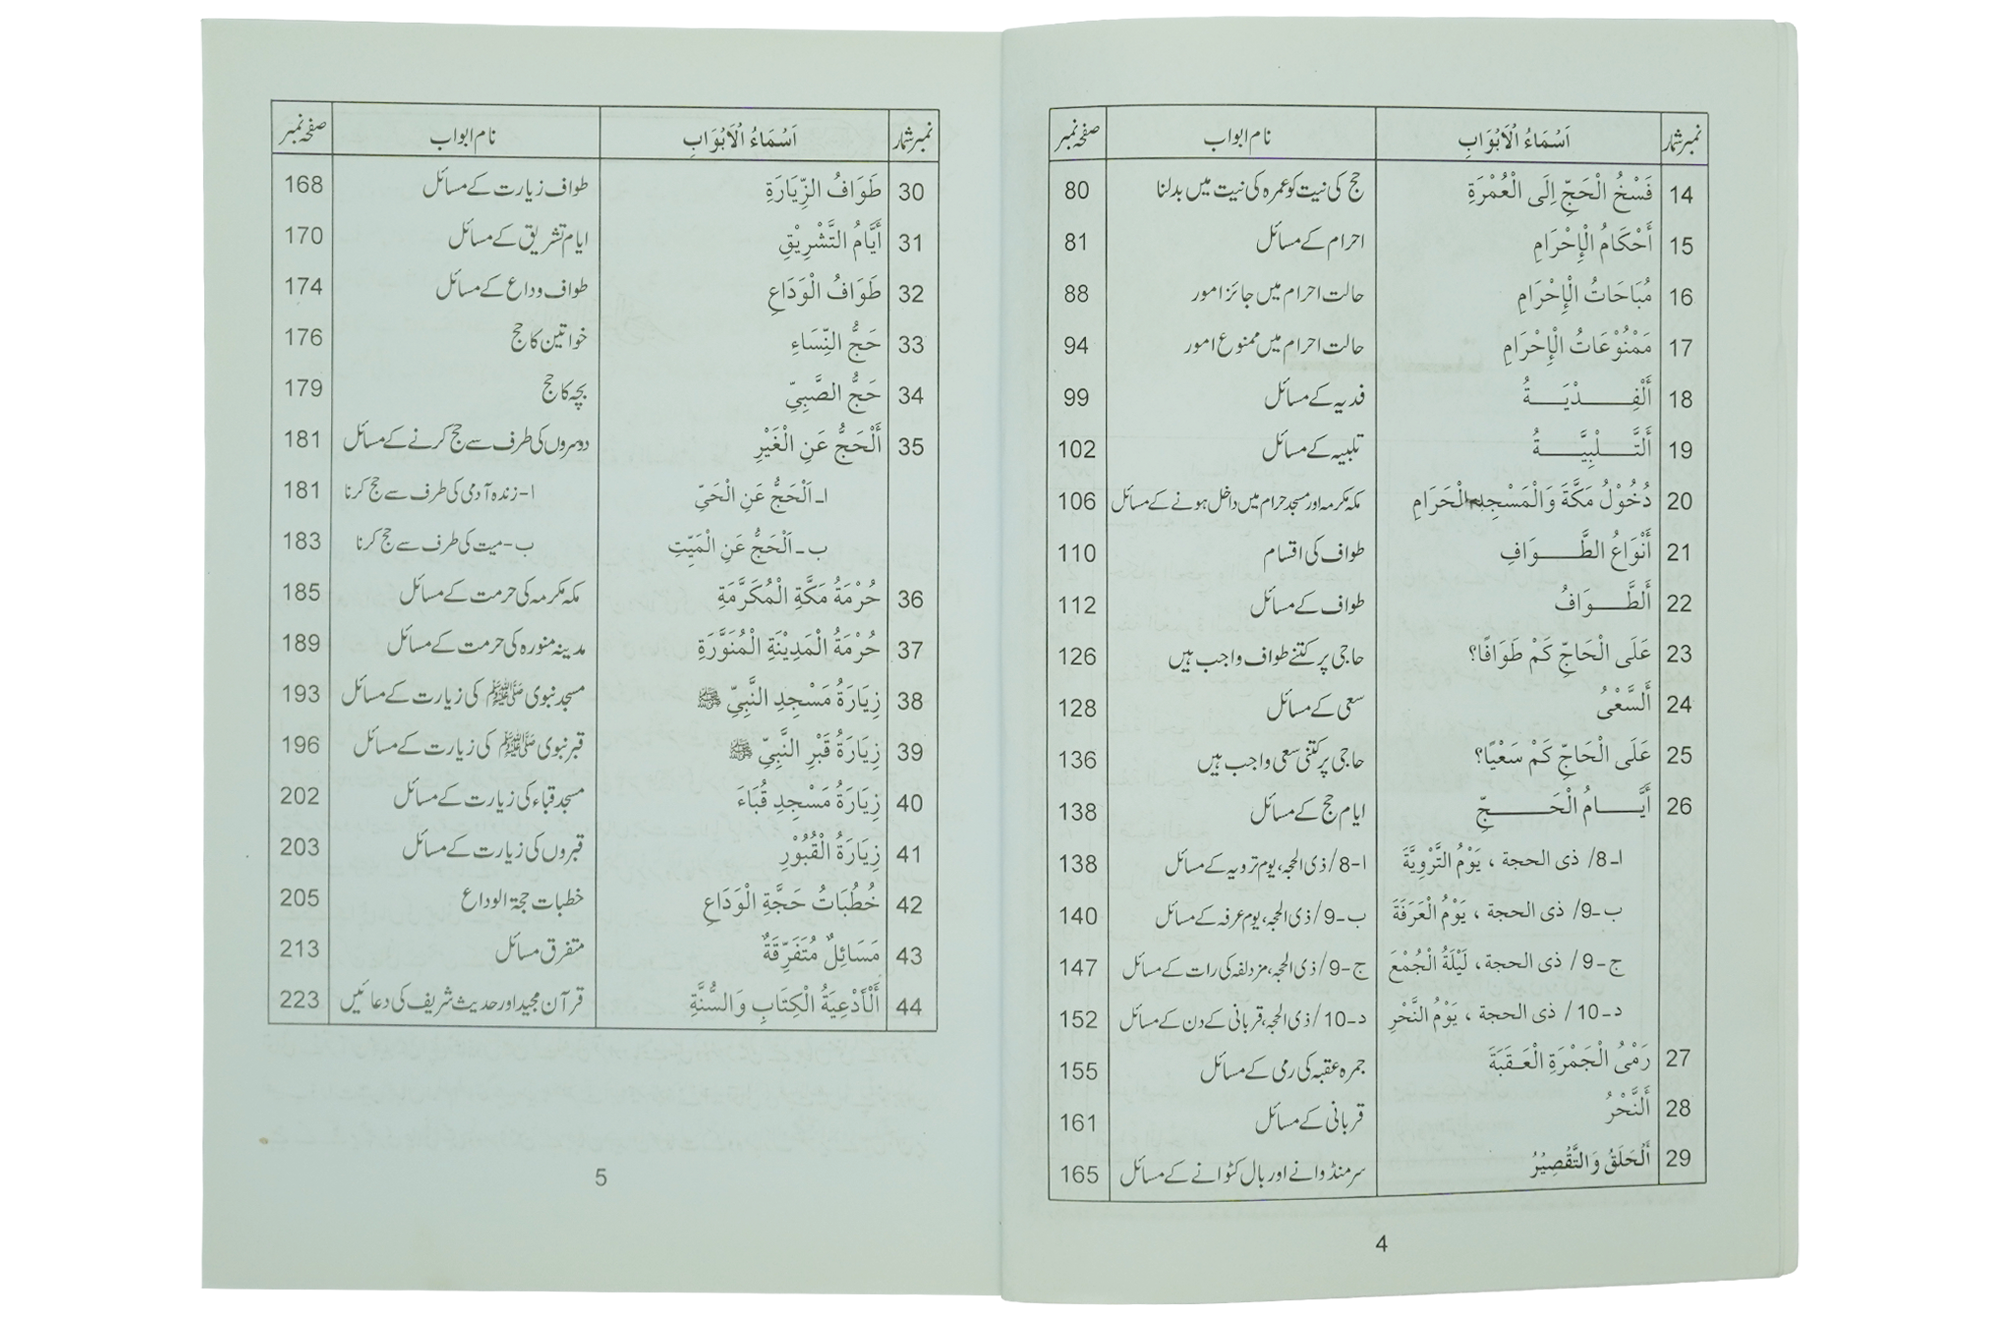 نمبر شمار اَسْمَاءُ الْاَبْوَابِ نام ابواب صفحہ نمبر
14 فَسْخُ الْحَجِّ اِلَى الْعُمْرَةِ حج کی نیت کو عمرہ کی نیت میں بدلنا 80
15 أَحْكَامُ الْإِحْرَامِ احرام کے مسائل 81
16 مُبَاحَاتُ الْإِحْرَامِ حالت احرام میں جائز امور 88
17 مَمْنُوْعَاتُ الْإِحْرَامِ حالت احرام میں ممنوع امور 94
18 أَلْفِـــدْيَـــةُ فدیہ کے مسائل 99
19 أَلتَّـــلْبِيَّـــةُ تلبیہ کے مسائل 102
20 دُخُوْلُ مَكَّةَ وَالْمَسْجِدِ الْحَرَامِ مکہ مکرمہ اور مسجد حرام میں داخل ہونے کے مسائل 106
21 أَنْوَاعُ الطَّـــوَافِ طواف کی اقسام 110
22 أَلطَّـــوَافُ طواف کے مسائل 112
23 عَلَى الْحَاجِّ كَمْ طَوَافًا؟ حاجی پر کتنے طواف واجب ہیں 126
24 أَلسَّعْىُ سعی کے مسائل 128
25 عَلَى الْحَاجِّ كَمْ سَعْيًا؟ حاجی پر کتنی سعی واجب ہیں 136
26 أَيَّـــامُ الْحَـــجِّ ایام حج کے مسائل 138
ا۔8/ ذی الحجة ، يَوْمُ التَّرْوِيَّةَ ا-8/ذی الحجہ، یوم ترویہ کے مسائل 138
ب۔9/ ذی الحجة ، يَوْمُ الْعَرَفَةَ ب-9/ذی الحجہ، یوم عرفہ کے مسائل 140
ج-9/ ذی الحجة، لَيْلَةُ الْجُمْعَ ج-9/ذی الحجہ، مزدلفہ کی رات کے مسائل 147
د-10/ ذی الحجة ، يَوْمُ النَّحْرِ د-10/ذی الحجہ، قربانی کے دن کے مسائل 152
27 رَمْىُ الْجَمْرَةِ الْعَـقَبَةَ جمرہ عقبہ کی رمی کے مسائل 155
28 أَلنَّحْرُ قربانی کے مسائل 161
29 أَلْحَلَقُ وَالتَّقْصِيْرُ سر منڈوانے اور بال کٹوانے کے مسائل 165
4
نمبر شمار اَسْمَاءُ الْاَبْوَابِ نام ابواب صفحہ نمبر
30 طَوَافُ الزِّيَارَةِ طواف زیارت کے مسائل 168
31 أَيَّامُ التَّشْرِيْقِ ایام تشریق کے مسائل 170
32 طَوَافُ الْوَدَاعِ طواف وداع کے مسائل 174
33 حَجُّ النِّسَاءِ خواتین کا حج 176
34 حَجُّ الصَّبِىِّ بچہ کا حج 179
35 أَلْحَجُّ عَنِ الْغَيْرِ دوسروں کی طرف سے حج کرنے کے مسائل 181
ا۔اَلْحَجُّ عَنِ الْحَىِّ ا-زندہ آدمی کی طرف سے حج کرنا 181
ب۔اَلْحَجُّ عَنِ الْمَيِّتِ ب-میت کی طرف سے حج کرنا 183
36 حُرْمَةُ مَكَّةِ الْمُكَرَّمَةِ مکہ مکرمہ کی حرمت کے مسائل 185
37 حُرْمَةُ الْمَدِيْنَةِ الْمُنَوَّرَةِ مدینہ منورہ کی حرمت کے مسائل 189
38 زِيَارَةُ مَسْجِدِ النَّبِىِّ ﷺ مسجد نبوی ﷺ کی زیارت کے مسائل 193
39 زِيَارَةُ قَبْرِ النَّبِىِّ ﷺ قبر نبوی ﷺ کی زیارت کے مسائل 196
40 زِيَارَةُ مَسْجِدِ قُبَاءَ مسجد قباء کی زیارت کے مسائل 202
41 زِيَارَةُ الْقُبُوْرِ قبروں کی زیارت کے مسائل 203
42 خُطُبَاتُ حَجَّةِ الْوَدَاعِ خطبات حجۃ الوداع 205
43 مَسَائِلٌ مُتَفَرِّقَةٌ متفرق مسائل 213
44 أَلْأَدْعِيَةُ الْكِتَابِ وَالسُّنَّةِ قرآن مجید اور حدیث شریف کی دعائیں 223
5